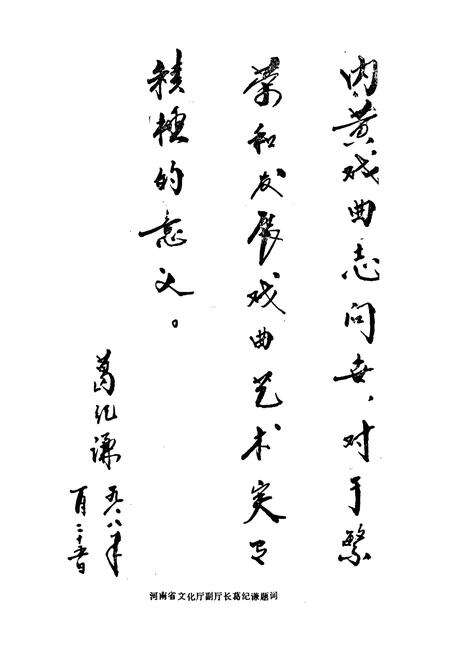 内黄戏曲志问世，对于繁
荣和发展戏曲艺术实
积极的意义。
葛纪谦
月二十五日
河南省文化厅副厅长葛纪谦题词